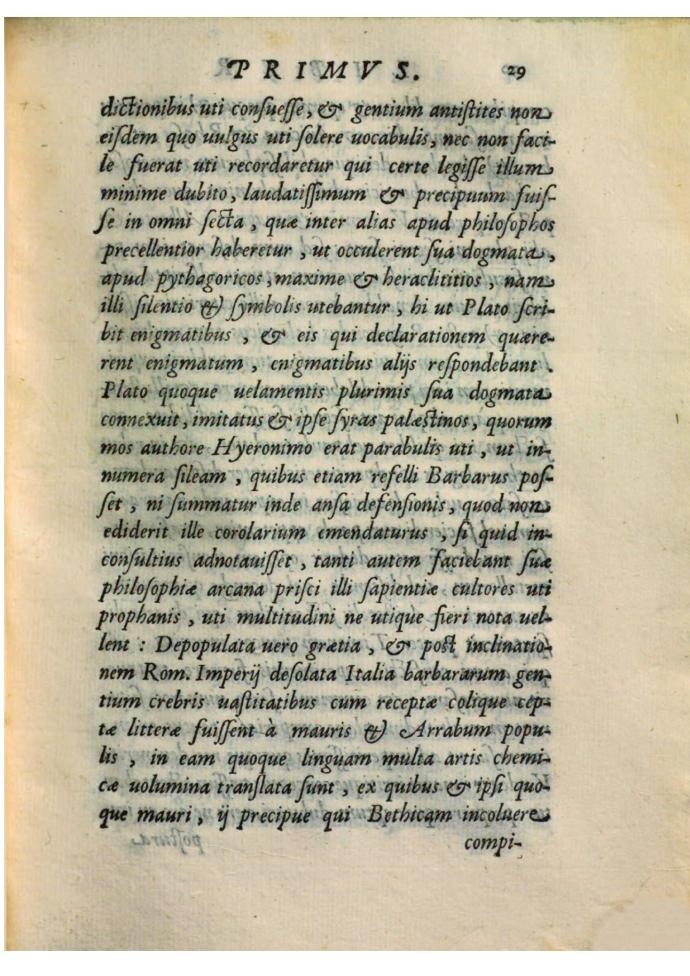 PRIMVS. 29
dictionibus uti consuesse, & gentium antistites non
eisdem quo uulgus uti solere uocabulis, nec non faci-
le fuerat uti recordaretur qui certe legisse illum
minime dubito, laudatissimum & precipuum fuis-
se in omni secta, quæ inter alias apud philosophos
precellentior haberetur, ut occulerent sua dogmata,
apud pythagoricos, maxime & heraclititios, nam
illi silentio & symbolis utebantur, hi ut Plato scri-
bit enigmatibus, & eis qui declarationem quære-
rent enigmatum, enigmatibus alijs respondebant.
Plato quoque uelamentis plurimis sua dogmata
connexuit, imitatus & ipse syras palæstinos, quorum
mos authore Hyeronimo erat parabulis uti, ut in-
numera sileam, quibus etiam refelli Barbarus pos-
set, ni summatur inde ansa defensionis, quod non
ediderit ille corolarium emendaturus, si quid in-
consultius adnotauisset, tanti autem faciebant suæ
philosophiæ arcana prisci illi sapientiæ cultores uti
prophanis, uti multitudini ne utique fieri nota uel-
lent: Depopulata uero grætia, & post inclinatio-
nem Rom. Imperij desolata Italia barbararum gen-
tium crebris uastitatibus cum receptæ colique cep-
tæ litteræ fuissent à mauris & Arrabum popu-
lis, in eam quoque linguam multa artis chemi-
cæ uolumina translata sunt, ex quibus & ipsi quo-
que mauri, ij precipue qui Bethicam incoluere
compi-